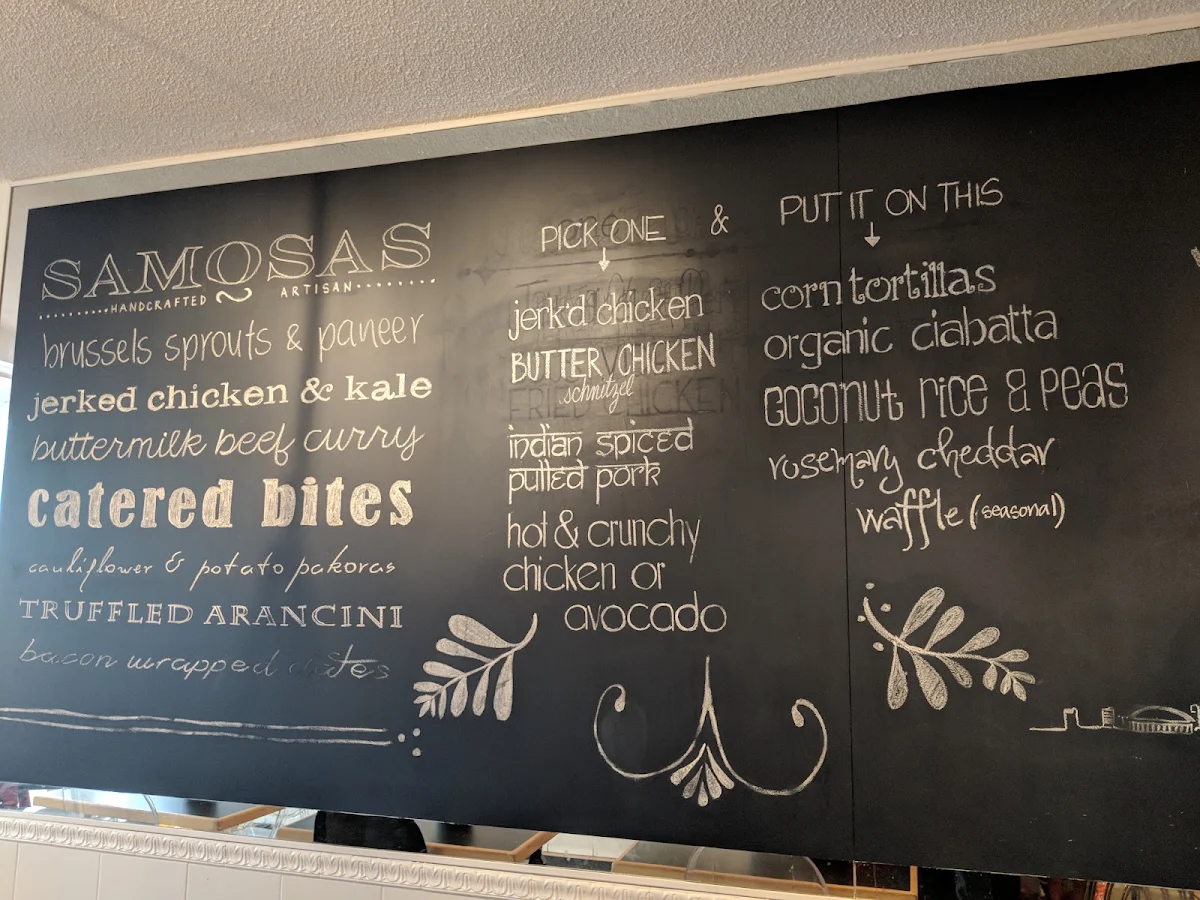 SAMOSAS
HANDCRAFTED ARTISAN
brussels sprouts & paneer
jerked chicken & kale
buttermilk beef curry
catered bites
cauliflower & potato pakoras
TRUFFLED ARANCINI
bacon wrapped dates
PICK ONE &
jerk'd chicken
BUTTER CHICKEN
schnitzel
FRIED CHICKEN
indian spiced
pulled pork
hot & crunchy
chicken or
avocado
PUT IT ON THIS
corn tortillas
organic ciabatta
coconut rice & peas
rosemary cheddar
waffle (seasonal)